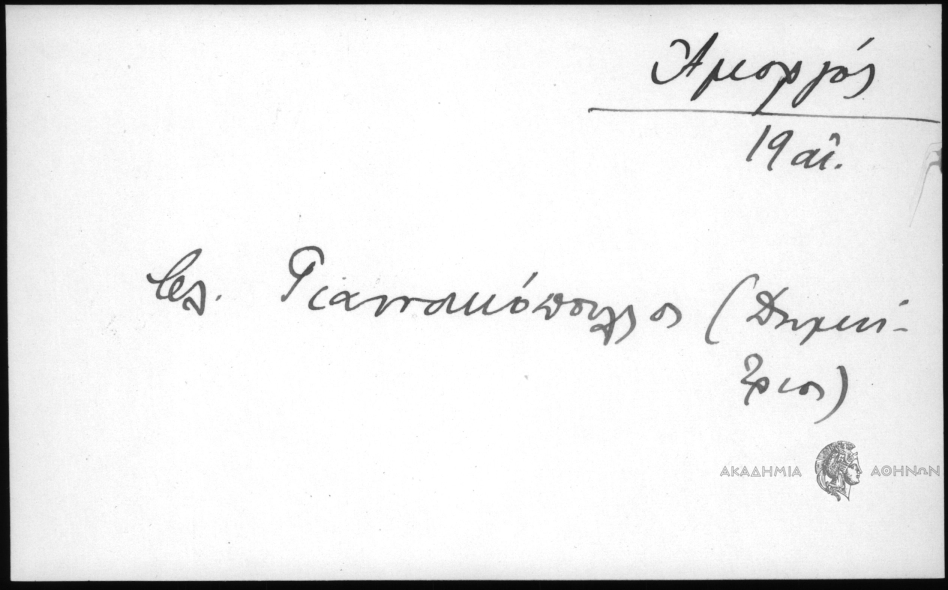 Ἀμοργός
19 αἰ.
βλ. Γιαννακόπουλος (Δημή-
τριος)
ΑΚΑΔΗΜΙΑ ΑΘΗΝΩΝ